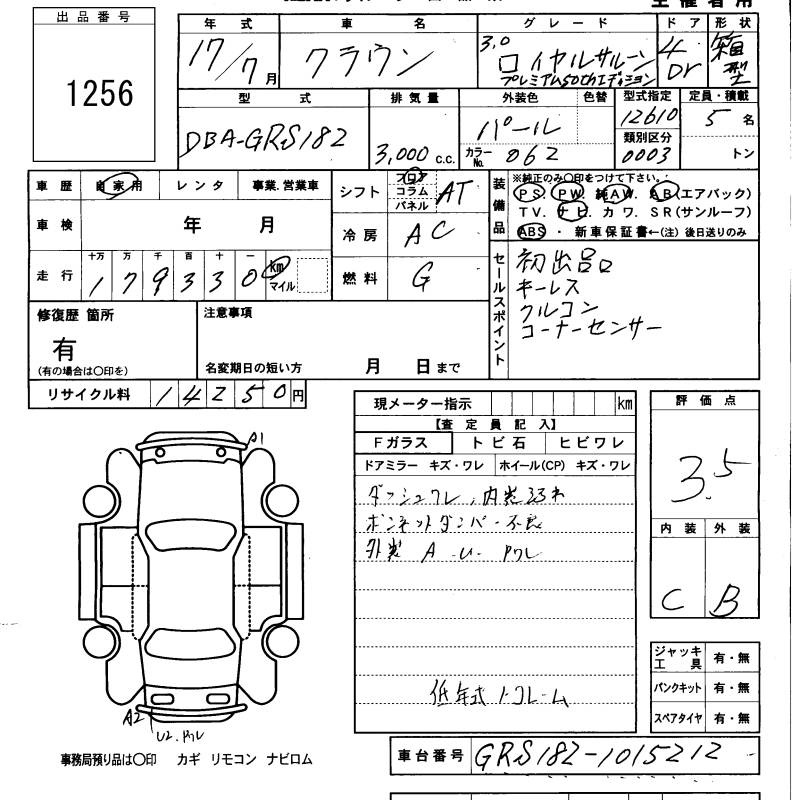 出品番号
1256
年式
17/7月
車名
クラウン
グレード
3,0
ロイヤルサルーン
プレミアム50thエディション
ドア
4
Dr
形状
箱型
型式
DBA-GRS182
排気量
3,000 c.c.
外装色
パール
色替
カラーNo.
062
型式指定
12610
類別区分
0003
定員・積載
5 名
トン
車歴
自家用 レンタ 事業.営業車
車検
年 月
走行
十万 万 千 百 十 一
179330
km
マイル
シフト
フロア
コラム
パネル
AT
冷房
AC
燃料
G
装備品
※純正のみ〇印をつけて下さい。
PS. PW. 純AW. AB(エアバック)
TV. ナビ. カワ. SR(サンルーフ)
ABS ・ 新車保証書←(注) 後日送りのみ
セールスポイント
初出品口
キーレス
クルコン
コーナーセンサー
修復歴 箇所
有
(有の場合は〇印を)
注意事項
名変期日の短い方 月 日まで
リサイクル料
14250円
現メーター指示 km
【査定員記入】
Fガラス トビ石 ヒビワレ
ドアミラー キズ・ワレ ホイール(CP) キズ・ワレ
ダッシュワレ、内装ヨゴレ
ボンネットダンパー不良
外装 A .U. Pワレ
低年式
評価点
3.5
内装 外装
C B
ジャッキ
工具
有・無
パンクキット
有・無
スペアタイヤ
有・無
A1
A2
U2.Pワレ
事務局預り品は〇印 カギ リモコン ナビロム
車台番号
GRS182-1015212